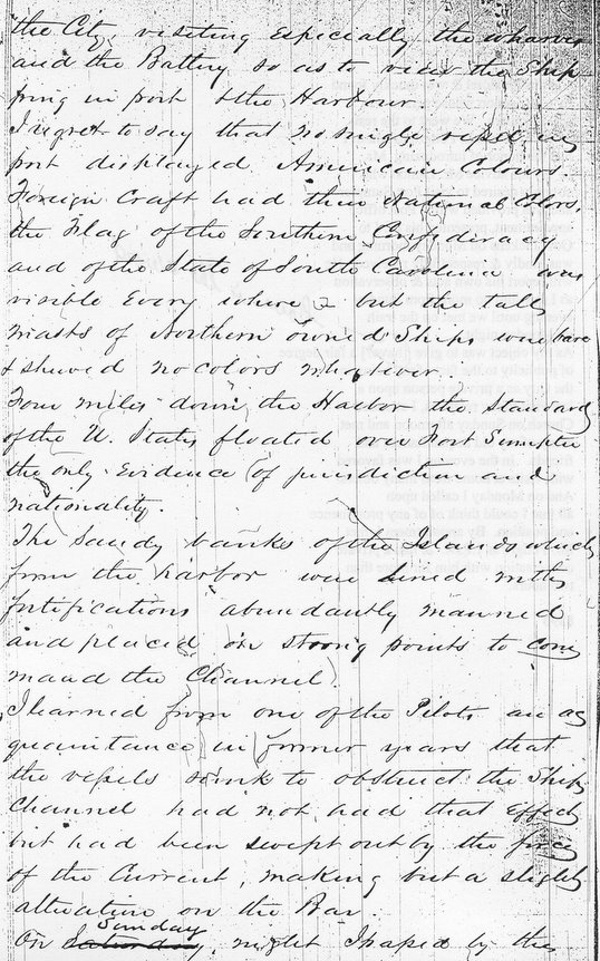 the City, visiting especially the wharves
and the Battery so as to view the Ship
ping in port & the Harbour.
I regret to say that no single vessel in
port displayed American Colours.
Foreign Craft had their National Colors,
the Flag of the Southern Confederacy
and of the State of South Carolina were
visible Every where - but the tall
masts of Northern owned Ships were bare
& shewed no colors whatever.
Four miles down the Harbor the Standard
of the U. States floated over Fort Sumpter
the only Evidence of jurisdiction and
nationality.
The Sandy banks of the Islands which
from the harbor were lined with
fortifications abundantly manned
and placed on strong points to com
mand the Channel.
I learned from one of the Pilots an ac
quaintance in former years that
the vessels sunk to obstruct the Ship
Channel had not had that Effect
but had been swept out by the force
of the Current, making but a slight
alteration on the Bar.
Sunday
On Saturday, night I passed by the